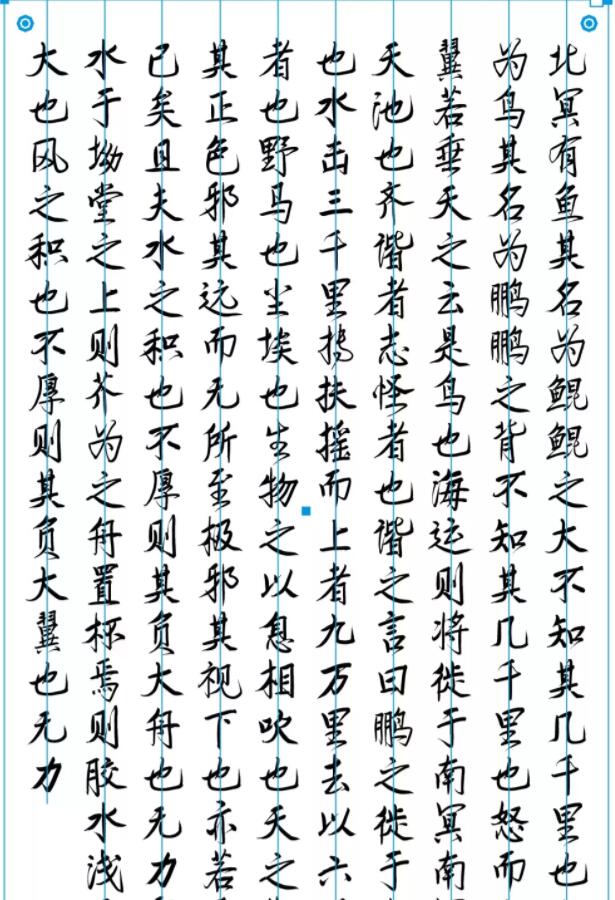 北冥有鱼其名为鲲鲲之大不知其几千里也
为鸟其名为鹏鹏之背不知其几千里也怒而
翼若垂天之云是鸟也海运则将徙于南冥南
天池也齐谐者志怪者也谐之言曰鹏之徙于
也水击三千里抟扶摇而上者九万里去以六
者也野马也尘埃也生物之以息相吹也天之
其正色邪其远而无所至极邪其视下也亦若
已矣且夫水之积也不厚则其负大舟也无力
水于坳堂之上则芥为之舟置杯焉则胶水浅
大也风之积也不厚则其负大翼也无力